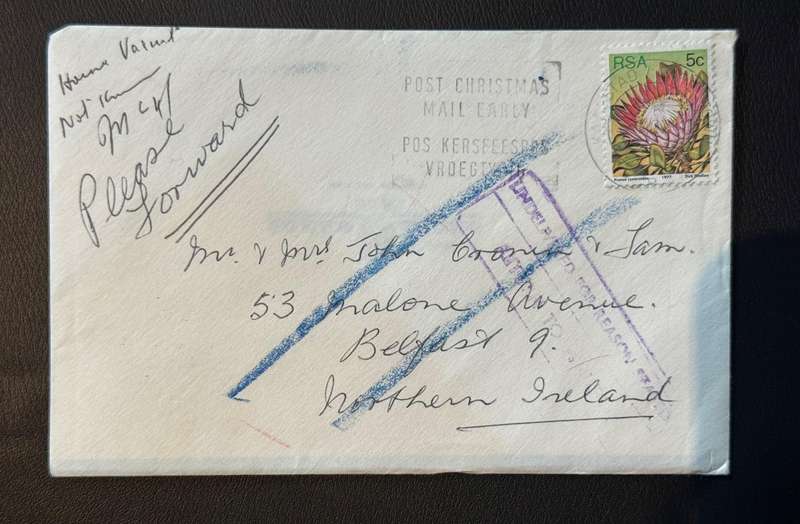 House Vacant
Not
Please
Forward
POST CHRISTMAS
MAIL EARLY
POS KERSFEESPOS
RSA 5c
1977
UNDELIVERED FOR REASON STATED
RETURN TO
Mr. & Mrs John Cronin & Fam.
53 Malone Avenue.
Belfast 9.
Northern Ireland